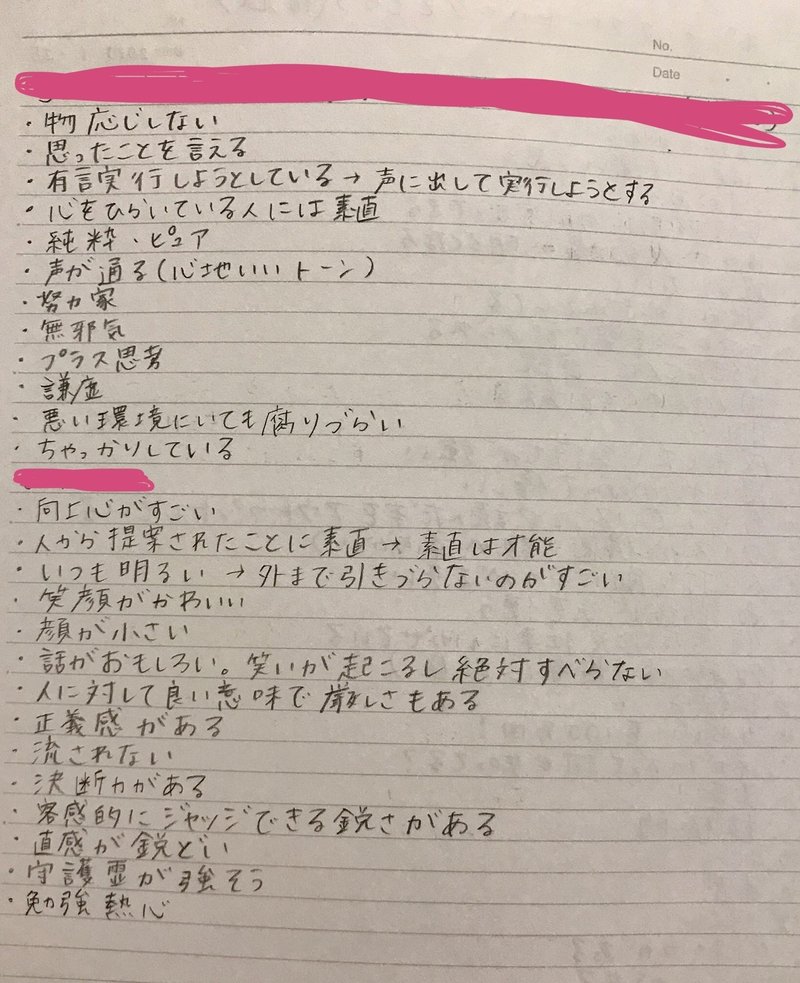 No.
Date
・物応じしない
・思ったことを言える
・有言実行しようとしている→声に出して実行しようとする
・心をひらいている人には素直
・純粋・ピュア
・声が通る(心地いいトーン)
・努力家
・無邪気
・プラス思考
・謙虚
・悪い環境にいても腐りづらい
・ちゃっかりしている
・向上心がすごい
・人から提案されたことに素直→素直は才能
・いつも明るい→外まで引きづらないのがすごい
・笑顔がかわいい
・顔が小さい
・話がおもしろい。笑いが起こるし絶対すべらない
・人に対して良い意味で厳しさもある
・正義感がある
・流されない
・決断力がある
・客感的にジャッジできる鋭さがある
・直感が鋭どい
・守護霊が強そう
・勉強熱心